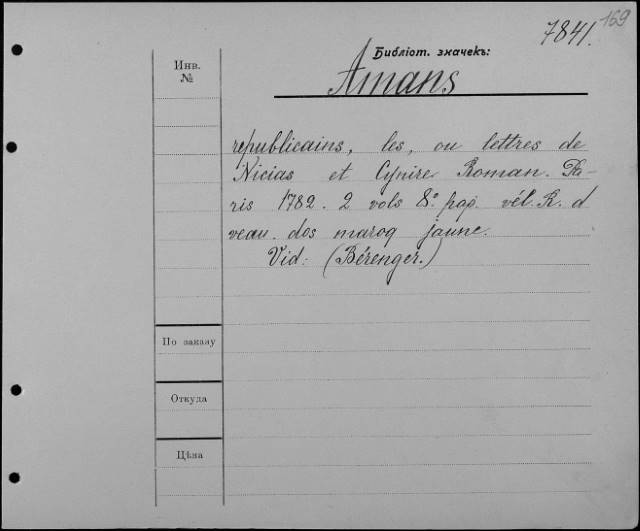 169
7841.
Библіот. значекъ:
Amans
Инв.
№
republicains, les, ou lettres de
Nicias et Cynire Roman. Pa-
ris 1782. 2 vols 8º. pap. vél. R. d
veau. dos maroq jaune.
Vid: (Bérenger.)
По заказу
Откуда
Цѣна